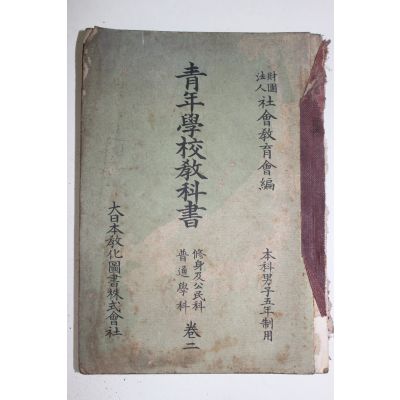 財團法人 社會教育會編
本科男子五年制用
青年學校教科書
修身及公民科
普通學科
卷二
大日本教化圖書株式會社